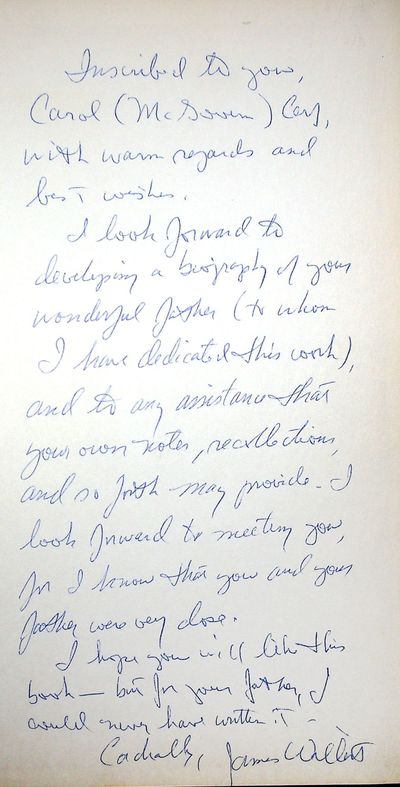 Inscribed to you,
Carol (McGovern) Cerf,
with warm regards and
best wishes.
I look forward to
developing a biography of your
wonderful father (to whom
I have dedicated this work),
and to any assistance that
your own notes, recollections,
and so forth may provide. I
look forward to meeting you,
for I know that you and your
father were very close.
I hope you will like this
book — but for your father, I
would never have written it.
Cordially, James